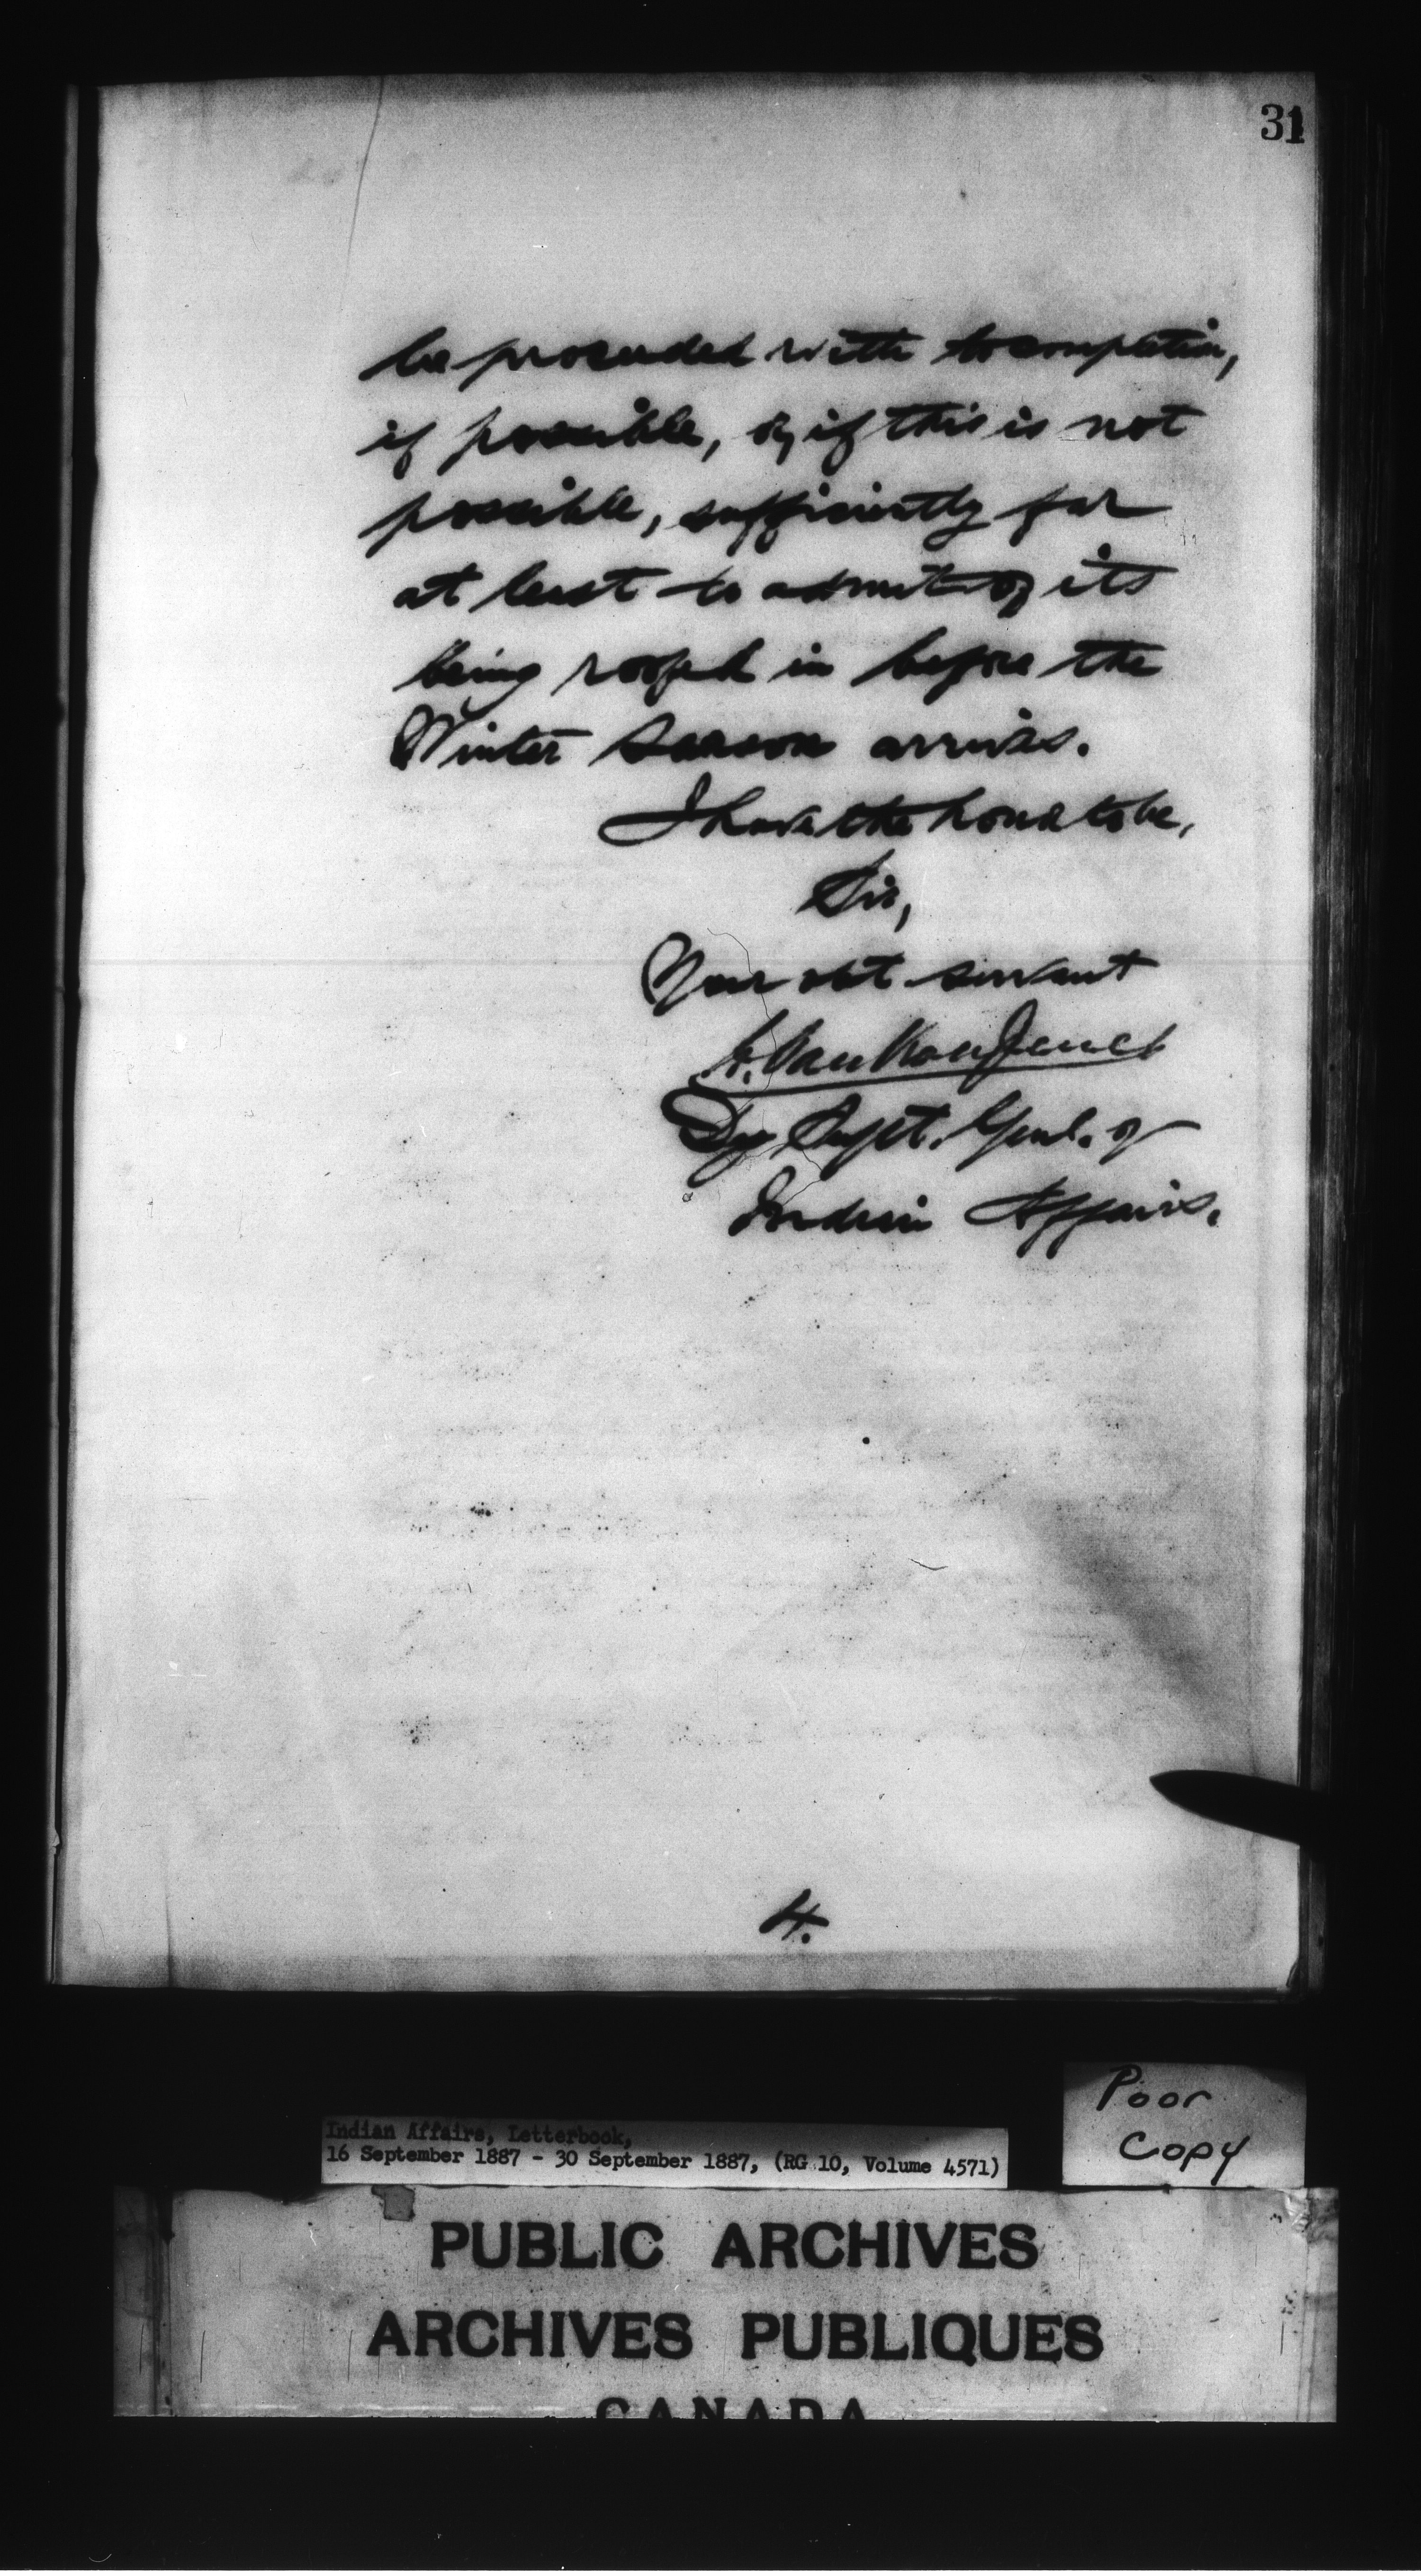 31
be proceeded with to completion,
if possible, or, if this is not
possible, sufficiently far
at least to admit of its
being roofed in before the
Winter Season arrives.
I have the honor to be,
Sir,
Your obt servant
L. VanKoughnet
Dy Supt. Genl. of
Indian Affairs.
4.
Poor
Copy
Indian Affairs, Letterbook,
16 September 1887 - 30 September 1887, (RG 10, Volume 4571)
PUBLIC ARCHIVES
ARCHIVES PUBLIQUES
CANADA